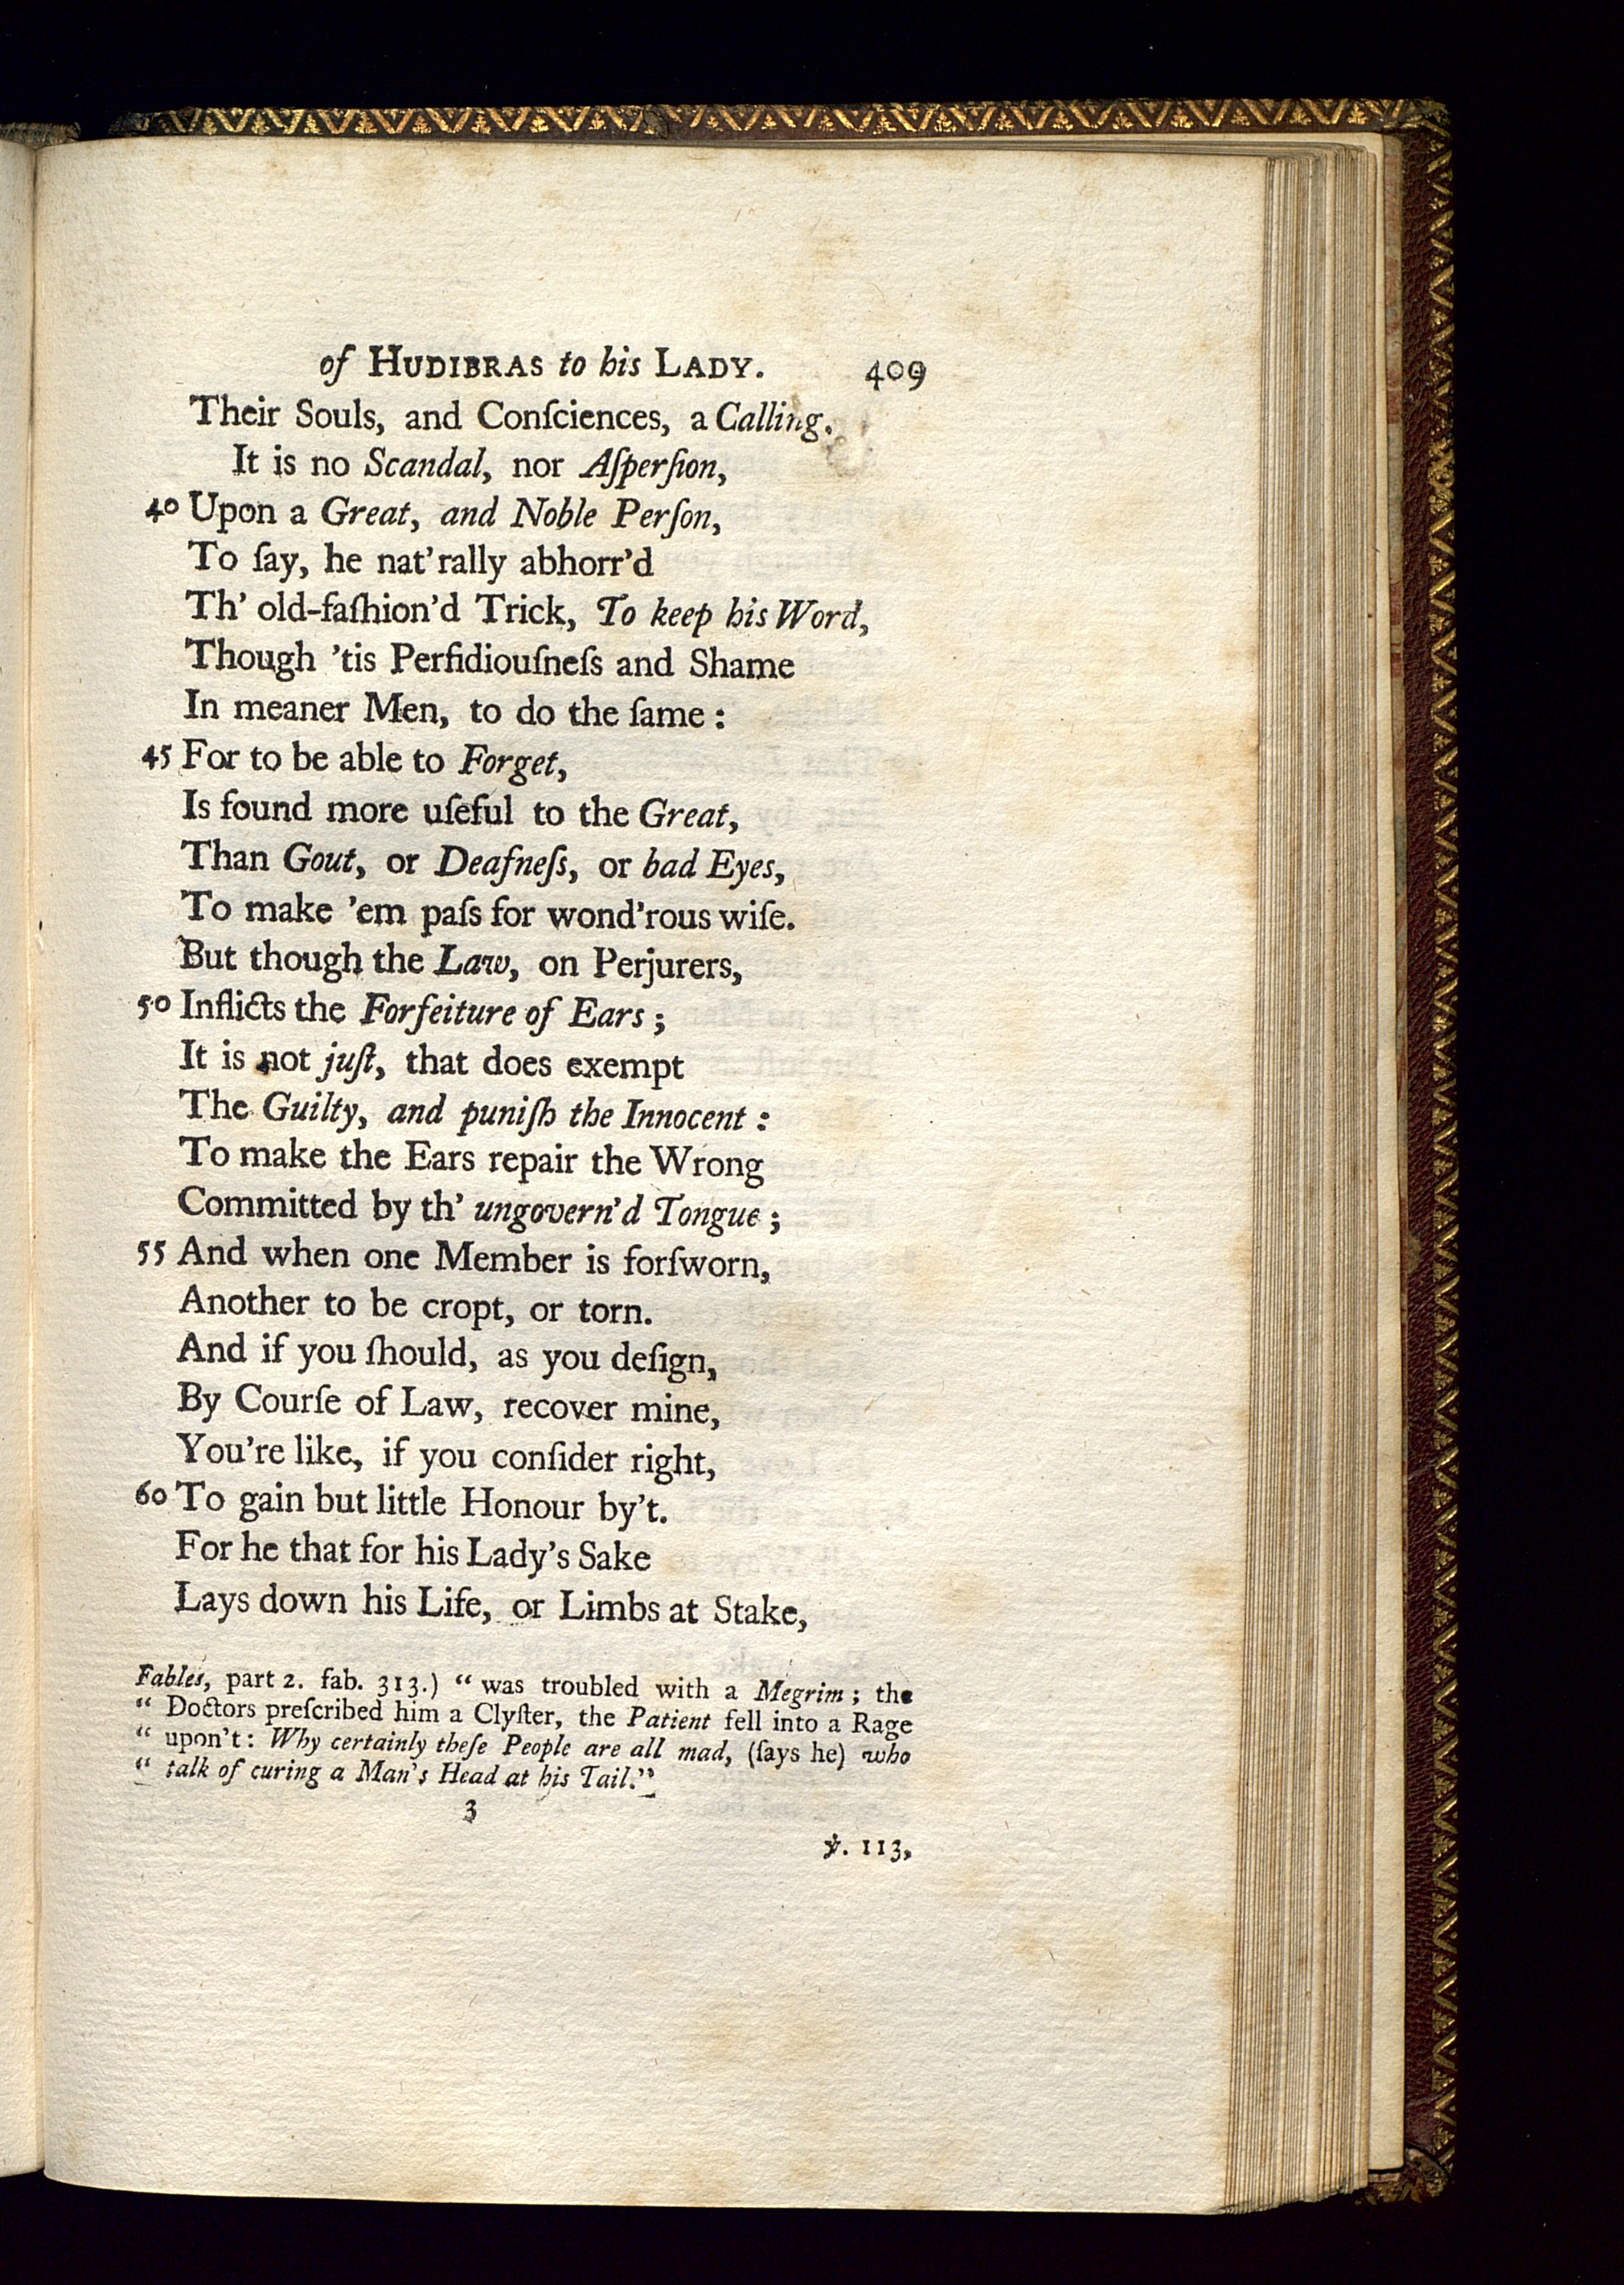 of HUDIBRAS to his LADY. 409
Their Souls, and Conſciences, a Calling.
It is no Scandal, nor Aſperſion,
40 Upon a Great, and Noble Perſon,
To ſay, he nat'rally abhorr'd
Th' old-faſhion'd Trick, To keep his Word,
Though 'tis Perfidiouſneſs and Shame
In meaner Men, to do the ſame :
45 For to be able to Forget,
Is found more uſeful to the Great,
Than Gout, or Deafneſs, or bad Eyes,
To make 'em paſs for wond'rous wiſe.
But though the Law, on Perjurers,
50 Inflicts the Forfeiture of Ears ;
It is not juſt, that does exempt
The Guilty, and puniſh the Innocent :
To make the Ears repair the Wrong
Committed by th' ungovern'd Tongue ;
55 And when one Member is forſworn,
Another to be cropt, or torn.
And if you ſhould, as you deſign,
By Courſe of Law, recover mine,
You're like, if you conſider right,
60 To gain but little Honour by't.
For he that for his Lady's Sake
Lays down his Life, or Limbs at Stake,
Fables, part 2. fab. 313.) “ was troubled with a Megrim ; the
“ Doctors preſcribed him a Clyſter, the Patient fell into a Rage
“ upon't : Why certainly theſe People are all mad, (ſays he) who
“ talk of curing a Man's Head at his Tail.”
3
℣. 113,